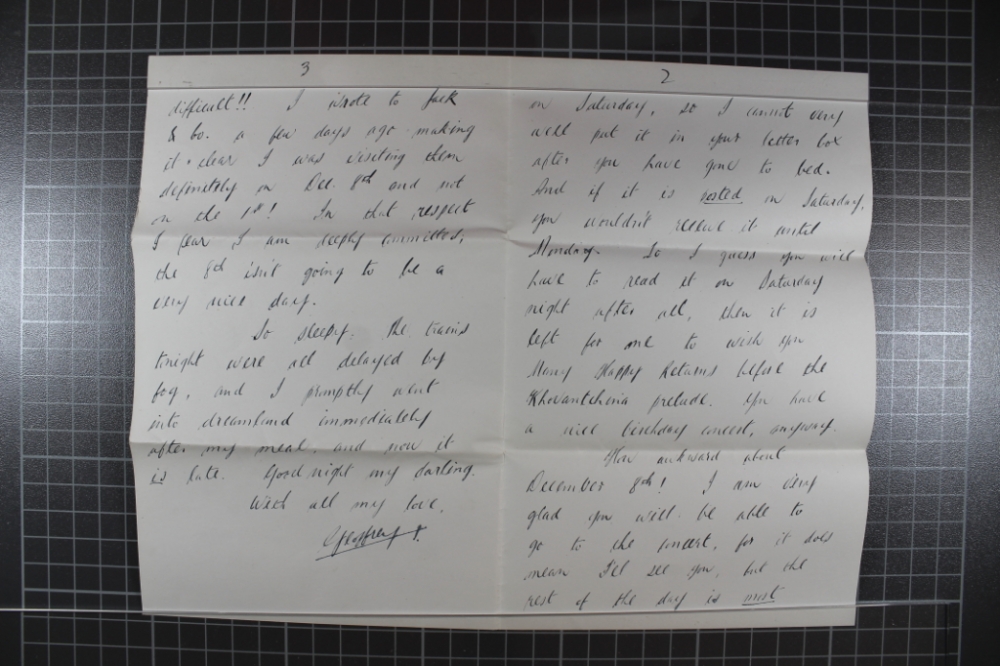 2
on Saturday, so I cannot very
well put it in your letter box
after you have gone to bed.
And if it is posted on Saturday,
you wouldn't receive it until
Monday. So I guess you will
have to read it on Saturday
night after all, then it is
left for me to wish you
Many Happy Returns before the
Khovantchina prelude. You have
a nice birthday concert, anyway.
How awkward about
December 8th! I am very
glad you will be able to
go to the concert, for it does
mean I'll see you, but the
rest of the day is most
3
difficult!! I wrote to Jack
& Co. a few days ago making
it clear I was visiting them
definitely on Dec. 8th and not
on the 1st! In that respect
I fear I am deeply committed,
the 8th isn't going to be a
very nice day.
So sleepy. The trains
tonight were all delayed by
fog, and I promptly went
into dreamland immediately
after my meal, and now it
is late. Good night my darling.
With all my love,
Geoffrey x.